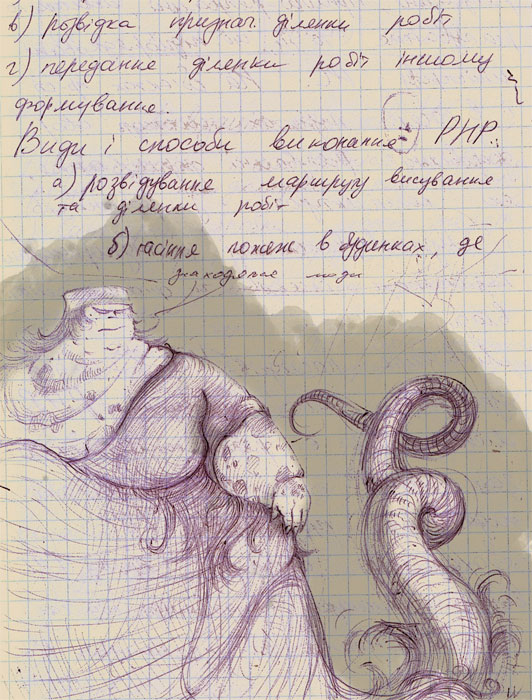 в) розвідка признач. ділянки робіт
г) передання ділянки робіт іншому
формування.
Види і способи виконання РНР.:
а) розвідування маршруту висування
та ділянки робіт
б) гасіння пожеж в будинках, де
знаходяться люди